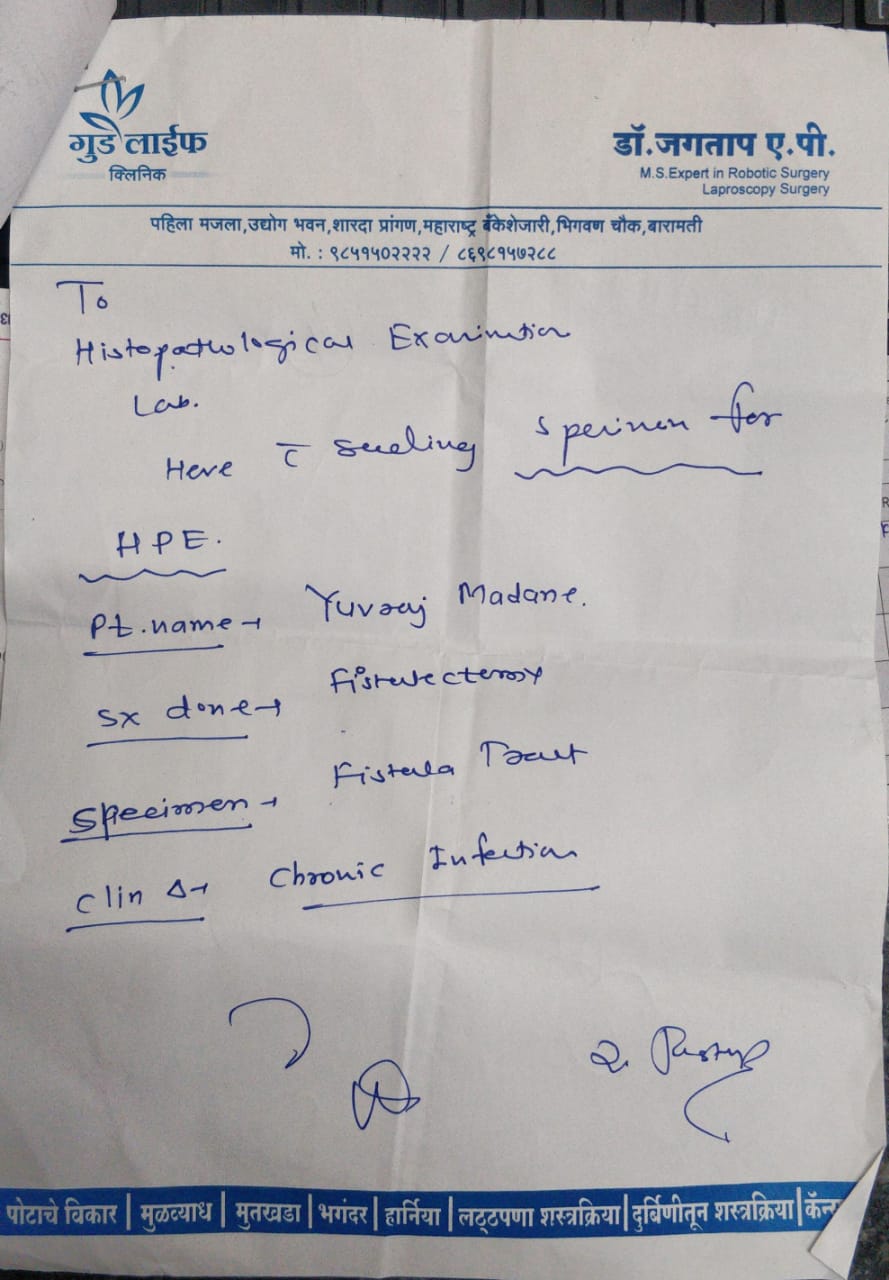 गुड लाईफ
क्लिनिक
डॉ.जगताप ए.पी.
M.S.Expert in Robotic Surgery
Laproscopy Surgery
पहिला मजला,उद्योग भवन,शारदा प्रांगण,महाराष्ट्र बँकेशेजारी,भिगवण चौक,बारामती
मो. : ९८५१५०२२२२ / ८६९८१५७२८८
To
Histopathological Examination
Lab.
Here c̄ sending specimen for
HPE.
Pt. name → Yuvraj Madane.
Sx done → Fistulectomy
Specimen → Fistula Tract
Clin Δ → Chronic Infection
पोटाचे विकार | मुळव्याध | मुतखडा | भगंदर | हार्निया | लठ्ठपणा शस्त्रक्रिया | दुर्बिणीतून शस्त्रक्रिया |